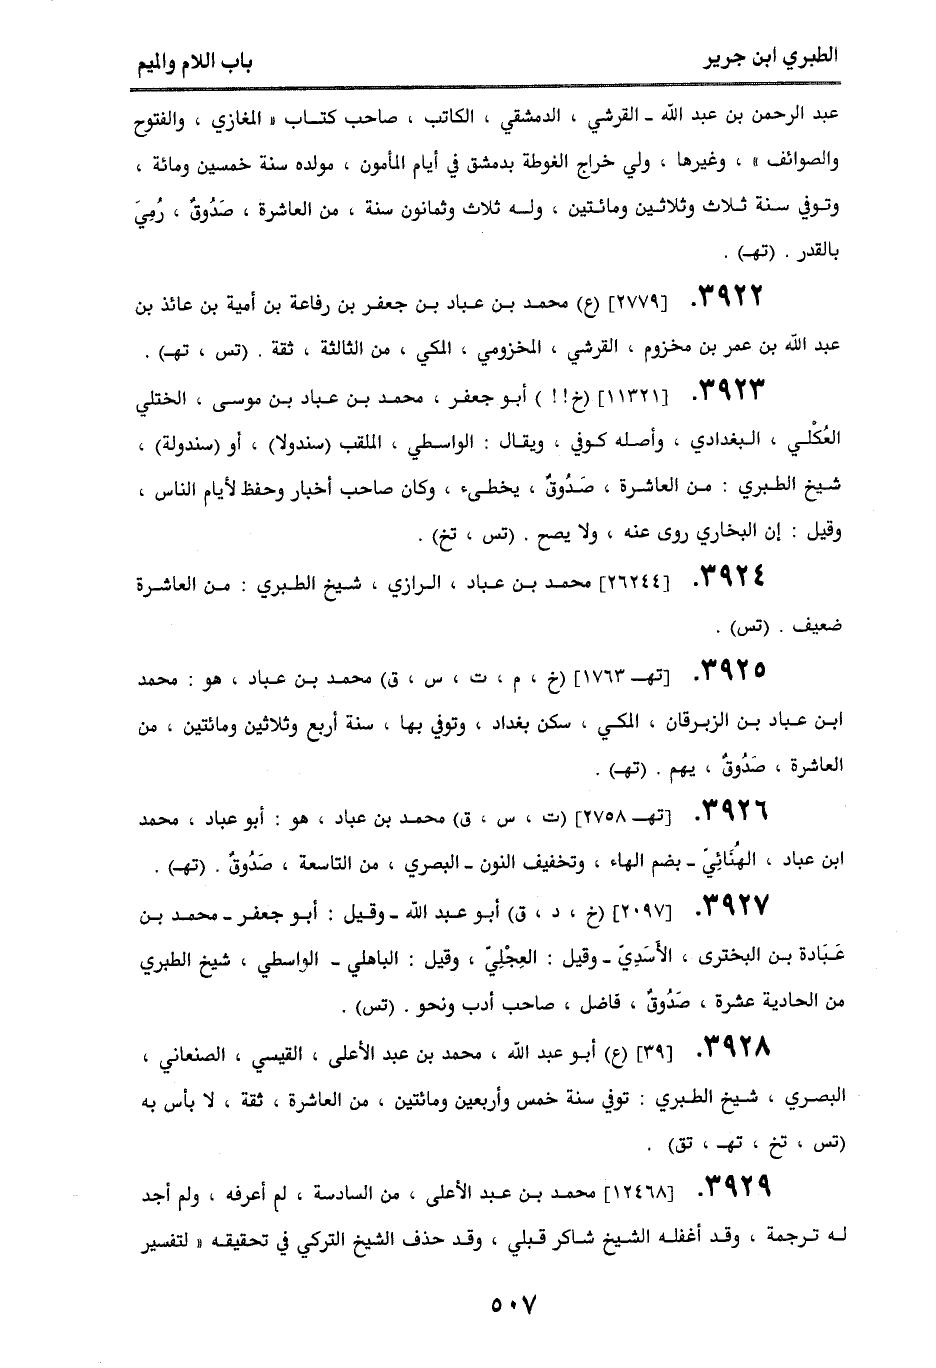 الطبري ابن جرير
باب اللام والميم
عبد الرحمن بن عبد الله ـ القرشي ، الدمشقي ، الكاتب ، صاحب كتاب « المغازي ، والفتوح
والصوائف » ، وغيرها ، ولي خراج الغوطة بدمشق في أيام المأمون ، مولده سنة خمسين ومائة ،
وتوفي سنة ثلاث وثلاثين ومائتين ، وله ثلاث وثمانون سنة ، من العاشرة ، صَدُوقٌ ، رُمِيَ
بالقدر . (تهـ) .
٣٩٢٢. [٢٧٧٩] (ع) محمد بن عباد بن جعفر بن رفاعة بن أمية بن عائذ بن
عبد الله بن عمر بن مخزوم ، القرشي ، المخزومي ، المكي ، من الثالثة ، ثقة . (تس ، تهـ) .
٣٩٢٣. [١١٣٢١] (خ!! ) أبو جعفر ، محمد بن عباد بن موسى ، الختلي
العُكْلي ، البغدادي ، وأصله كوفي ، ويقال : الواسطي ، الملقب (سندولا) ، أو (سندولة) ،
شيخ الطبري : من العاشرة ، صَدُوقٌ ، يخطىء ، وكان صاحب أخبار وحفظ لأيام الناس ،
وقيل : إن البخاري روى عنه ، ولا يصح . (تس ، تخ) .
٣٩٢٤. [٢٦٢٤٤] محمد بن عباد ، الرازي ، شيخ الطبري : من العاشرة
ضعيف . (تس) .
٣٩٢٥. [تهـ ١٧٦٣] (خ ، م ، ت ، س ، ق) محمد بن عباد ، هو : محمد
ابن عباد بن الزبرقان ، المكي ، سكن بغداد ، وتوفي بها ، سنة أربع وثلاثين ومائتين ، من
العاشرة ، صَدُوقٌ ، يهم . (تهـ) .
٣٩٢٦. [تهـ ٢٧٥٨] (ت ، س ، ق) محمد بن عباد ، هو : أبو عباد ، محمد
ابن عباد ، الهُنَائِيّ ـ بضم الهاء ، وتخفيف النون ـ البصري ، من التاسعة ، صَدُوقٌ . (تهـ) .
٣٩٢٧. [٢٠٩٧] (خ ، د ، ق) أبو عبد الله ـ وقيل : أبو جعفر ـ محمد بن
عَبَادة بن البخترى ، الأَسَدِيّ ـ وقيل : العِجْلِيّ ، وقيل : الباهلي ـ الواسطي ، شيخ الطبري
من الحادية عشرة ، صَدُوقٌ ، فاضل ، صاحب أدب ونحو . (تس) .
٣٩٢٨. [٣٩] (ع) أبو عبد الله ، محمد بن عبد الأعلى ، القيسي ، الصنعاني ،
البصري ، شيخ الطبري : توفي سنة خمس وأربعين ومائتين ، من العاشرة ، ثقة ، لا بأس به
(تس ، تخ ، تهـ ، تق) .
٣٩٢٩. [١٢٤٦٨] محمد بن عبد الأعلى ، من السادسة ، لم أعرفه ، ولم أجد
له ترجمة ، وقد أغفله الشيخ شاكر قبلي ، وقد حذف الشيخ التركي في تحقيقه « لتفسير
٥٠٧